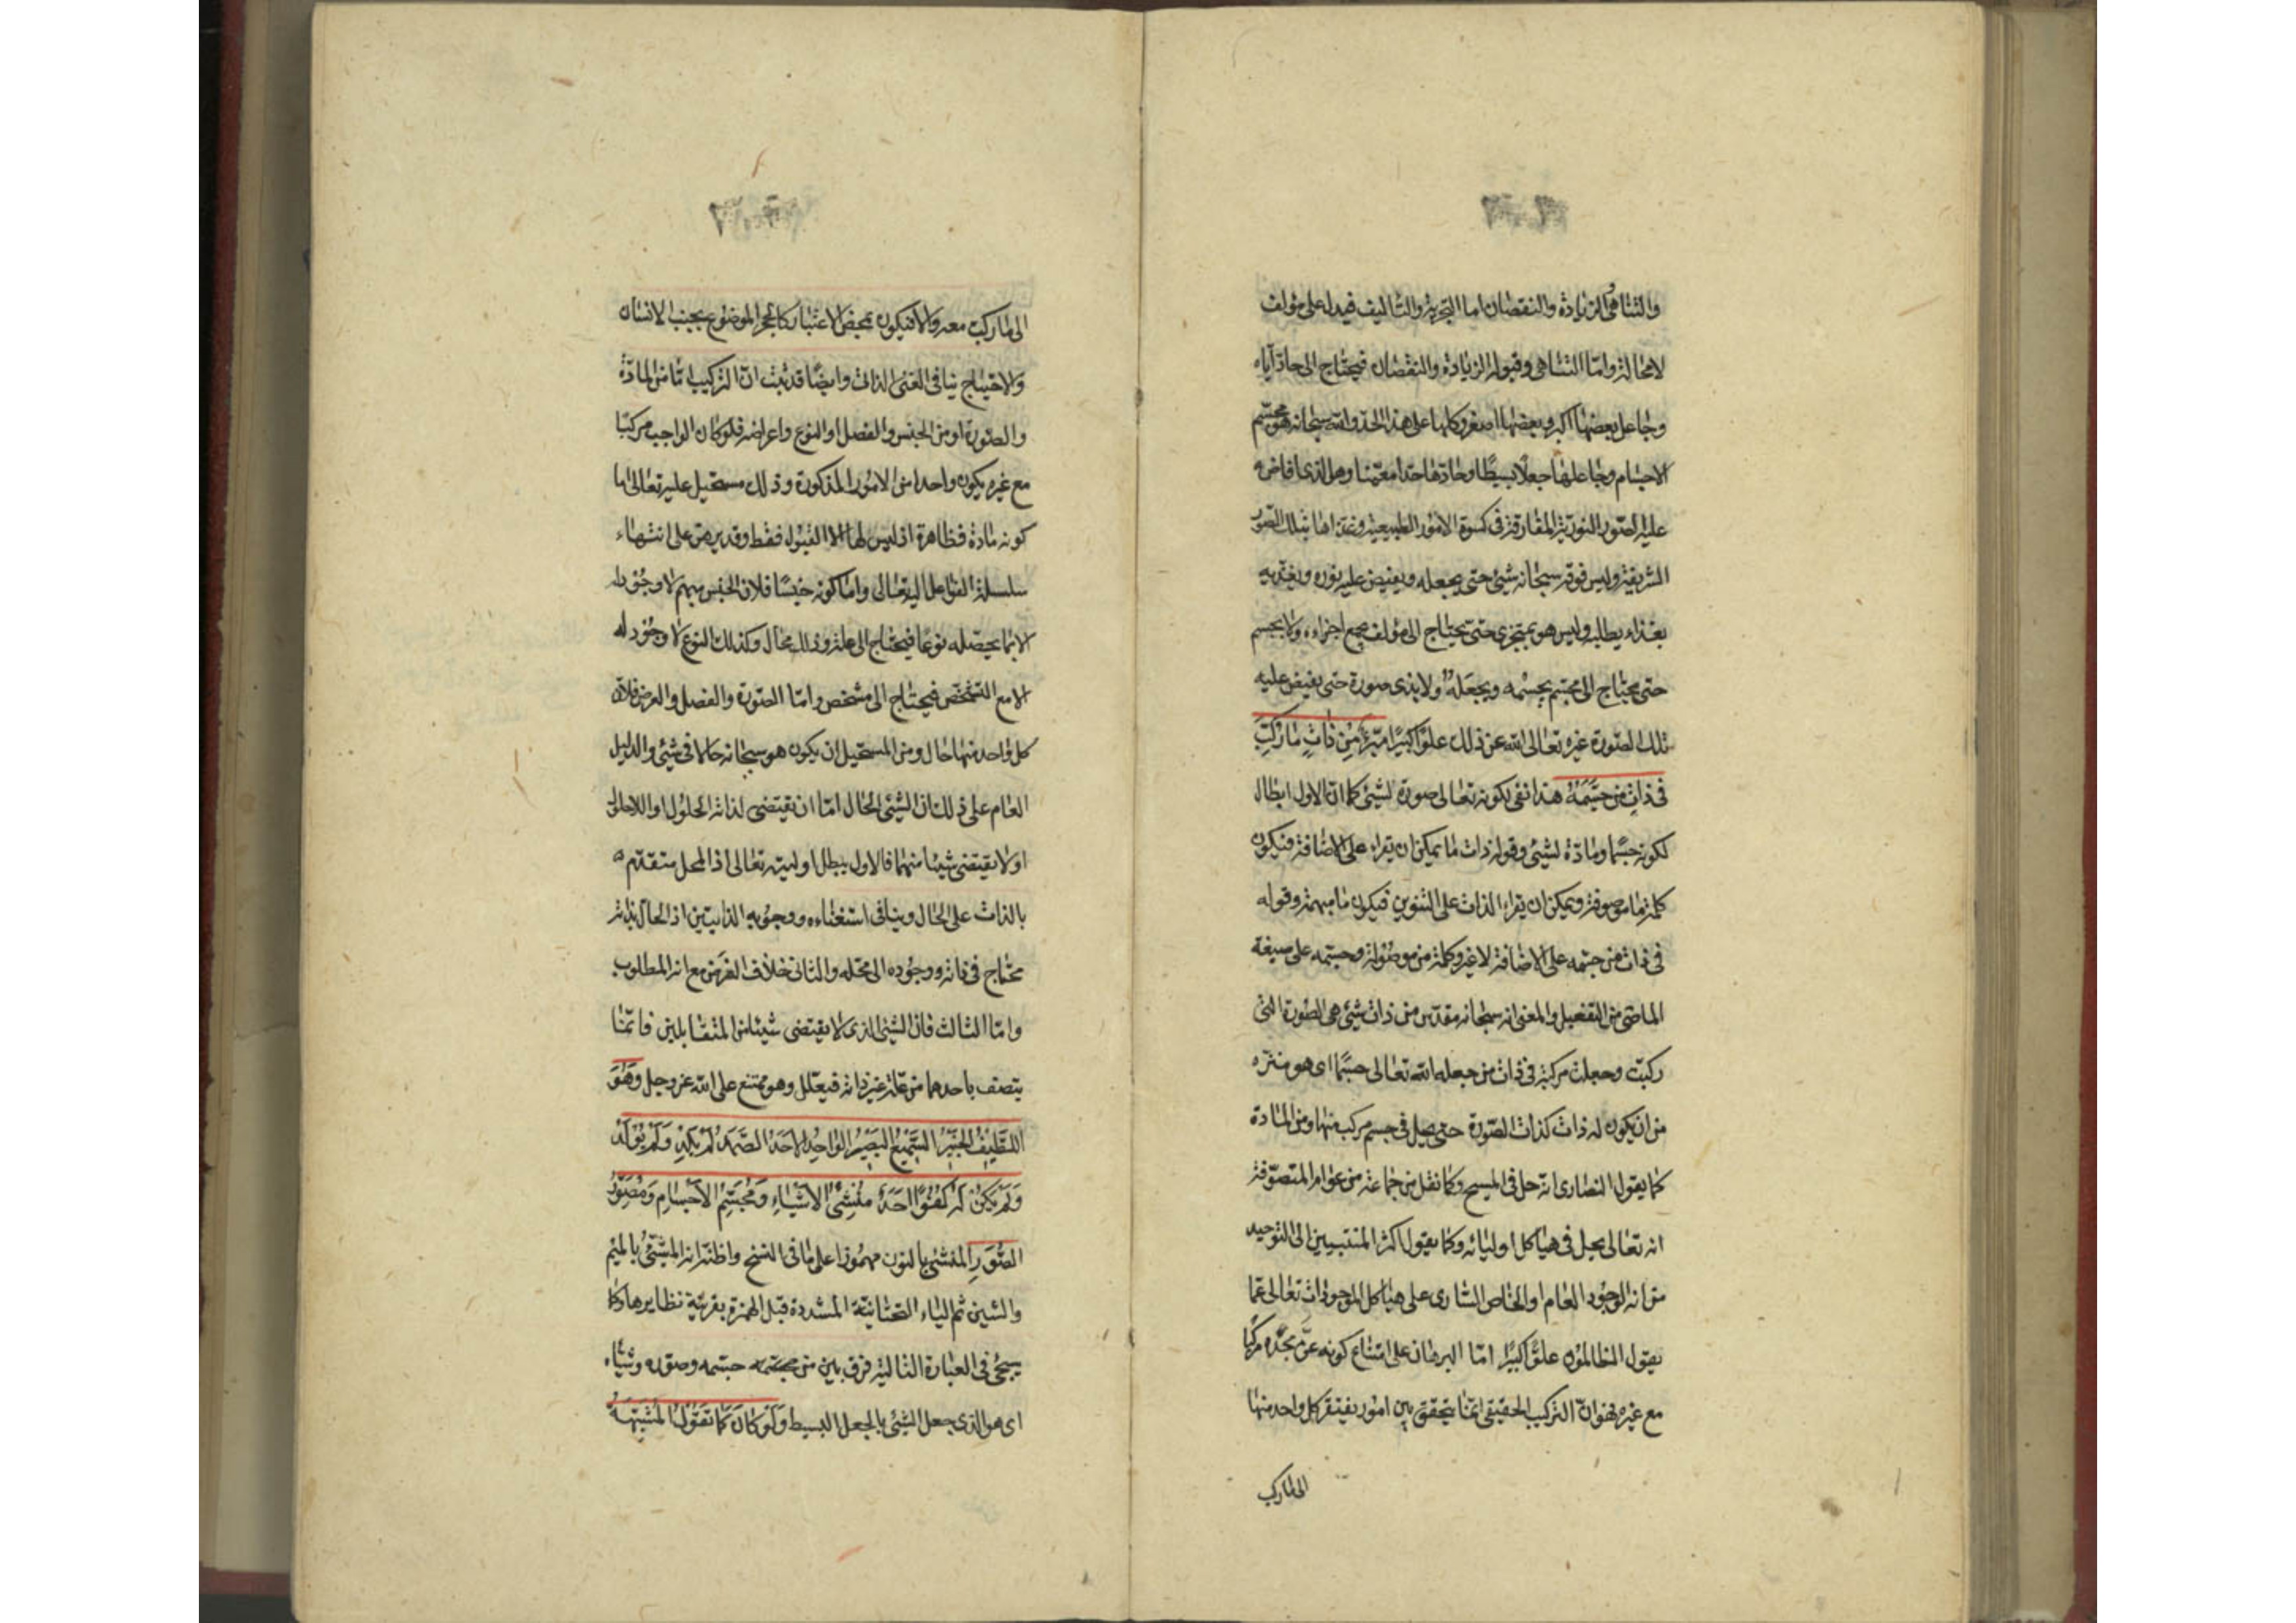 والتناهى الزيادة والنقصان اما التجزية والتاليف فيدل على مؤلف
لامحالة واما التناهى وقبول الزيادة والنقصان فيحتاج الى حادّ آياه
وجاعل بعضها اكبر وبعضها اصغر وكلها على هذا الحد والله سبحانه هو مجسّم
الاجسام وجاعلها جعلا بسيطا وحادّها حدا معيّنا وهو الذى افاض
عليه الصور النورية المفارقة فى كسوة الامور الطبيعية وغذاها بتلك الصور
الشريفة وليس فوقه سبحانه شئ حتى يجعله ويفيض عليه نوره ويغذيه
بغذاء يطلبه وليس هو بمتجزى حتى يحتاج الى مؤلف يجمع اجزاءه ولا بجسم
حتى يحتاج الى مجسّم يجسّمه ويجعله ولا بذى صورة حتى يفيض عليه
تلك الصورة غيره تعالى الله عن ذلك علوّا كبيرا مبرّأ من ذات ما ركّب
فى ذات من جسّمه هذا نفى لكونه تعالى صورة لشئ كما انّ الاول ابطال
لكونه جسما ومادّة لشئ وقوله ذات ما يمكن ان يقراء على الاضافة فيكون
كلمة ما موصوفة ويمكن ان يقراء الذات على التنوين فيكون ما مبهمة وقوله
فى ذات من جسّمه على الاضافة لاغير وكلمة من موصولة وجسّمه على صيغة
الماضى من التفعيل والمعنى انه سبحانه مقدّس من ذات شئ هى الصورة التى
ركبت وجعلت مركبة فى ذات من جعله الله تعالى جسّما اى هو منزّه
من ان يكون له ذات كذات الصّورة حتى يحل فى جسم مركب منها ومن المادة
كما يقول النصارى انه حل فى المسيح وكما نقل من جماعة من عوام المتصوّفة
انه تعالى يحل فى هياكل اوليائه وكما يقول اكثر المنتسبين الى التوحيد
من انه الوجود العام او الخاص السارى على هياكل الموجودات تعالى عمّا
يقول الظالمون علوّا كبيرا امّا البرهان على امتناع كونه عزّ مجدّه مركبا
مع غيره فهو انّ التركيب الحقيقى انما يتحقق بين امور يفتقر كل واحد منها
الى ماركب
الى ماركب معه والا فيكون بمحض الاعتبار كالحجر الموضوع بجنب الانسان
والاحتياج ينافى الغنى الذات وايضا قد ثبت انّ التركيب امّا من المادّة
والصورة او من الجنس والفصل او النوع واعراضه فلو كان الواجب مركبا
مع غيره يكون واحدا من الامور المذكورة وذلك مستحيل عليه تعالى اما
كونه مادة فظاهرة اذ ليس لها الا القبول فقط وقد برهن على انتهاء
سلسلة الفواعل اليه تعالى واما كونه جنسا فلان الجنس مبهم لا وجود له
الا بما يحصله نوعا فيحتاج الى علة وذلك محال وكذلك النوع لا وجود له
الا مع التشخص فيحتاج الى مشخص وامّا الصّورة والفصل والعرض فلانّ
كل واحد منها حال ومن المستحيل ان يكون هو سبحانه حالا فى شئ والدليل
العام على ذلك ان الشئ الحال امّا ان يقتضى لذاته الحلول او اللاحلول
او لا يقتضى شيئا منهما فالاول يبطل اوليته تعالى اذ المحل متقدّم
بالذات على الحال وينافى استغناءه ووجوبه الذاتيين اذ الحالّ بذاته
محتاج فى ذاته ووجوده الى محله والثانى خلاف الفرض مع انه المطلوب
وامّا الثالث فانّ الشئ الذى لا يقتضى شيئا من المتقابلين فانّما
يتصف باحدهما من علة غير ذاته فيعلل وهو ممتنع على الله عز وجل وَهُوَ
اللّطِيفُ الخَبِيرُ السَّمِيعُ البَصِيرُ الوَاحِدُ الاَحَدُ الصَّمَدُ لَمْ يَلِدْ وَلَمْ يُولَدْ
وَلَمْ يَكُنْ لَهُ كُفُوًا اَحَدٌ مُنْشِئُ الاَشْيَاءِ وَمُجَسِّمُ الاَجْسَامِ وَمُصَوِّرُ
الصُّوَرِ المنشئ بالنون مهموزا على ما فى النسخ واظنّ انه المشيّئ بالميم
والشين ثم الياء التحتانية المشددة قبل الهمزة بقرينة نظايرها وكما
سيجئ فى العبارة التالية فرق بين من جسّمه وصوّره وشيّاه
اى هو الذى جعل الشئ بالجعل البسيط وَلَوْ كَانَ كَمَا تَقُولُ المُشَبِّهَةُ